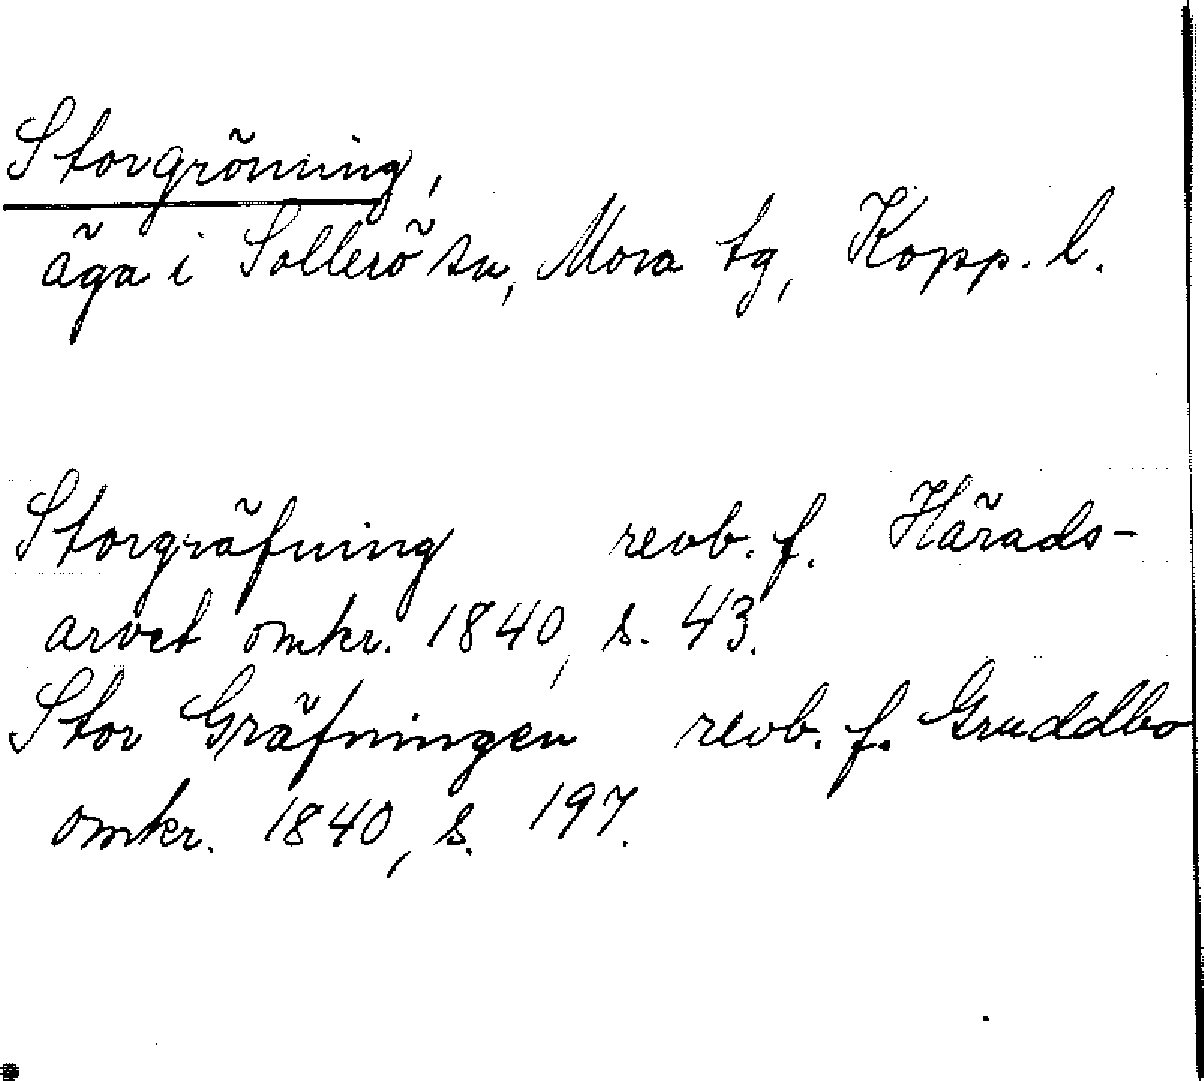 Storgrönning,
äga i Sollerö sn, Mora tg, Kopp. l.
Storgräfning revb. f. Härads-
arvet omkr. 1840, s. 43.
Stor Gräfningen revb. f. Gruddbo
omkr. 1840, s. 197.